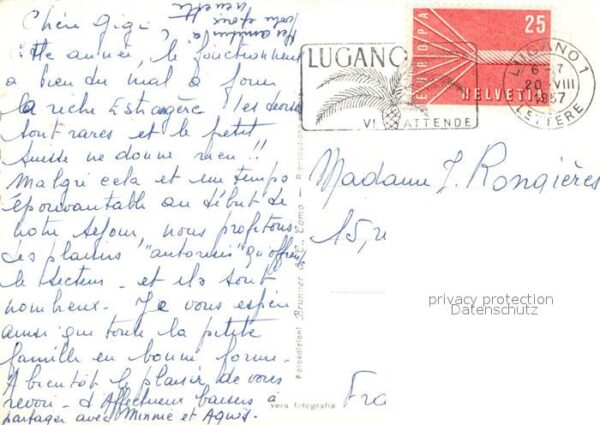 Chère Gigi,
Mes amitiés à
votre époux
Cette année, le fonctionnement
a bien du mal à
la riche Estrangère les devises
sont rares et le petit
Suisse ne donne rien !!
Malgré cela et un temps
épouvantable au début de
notre séjour, nous profitons
des plaisirs "autorisés" qu'offrent
le secteur - et ils sont
nombreux. Je vous espère
ainsi que toute la petite
famille en bonne forme.
A bientôt le plaisir de vous
revoir - d'Affectueux baisers à
partager avec Minnie et
LUGANO
VI ATTENDE
EUROPA
25
HELVETIA
LUGANO 1
20.VIII
1957
LETTERE
Madame J. Rongières
15, r
Fra
Fotoedizioni Brunner & C. Como - Riproduz
vera fotografia
privacy protection
Datenschutz